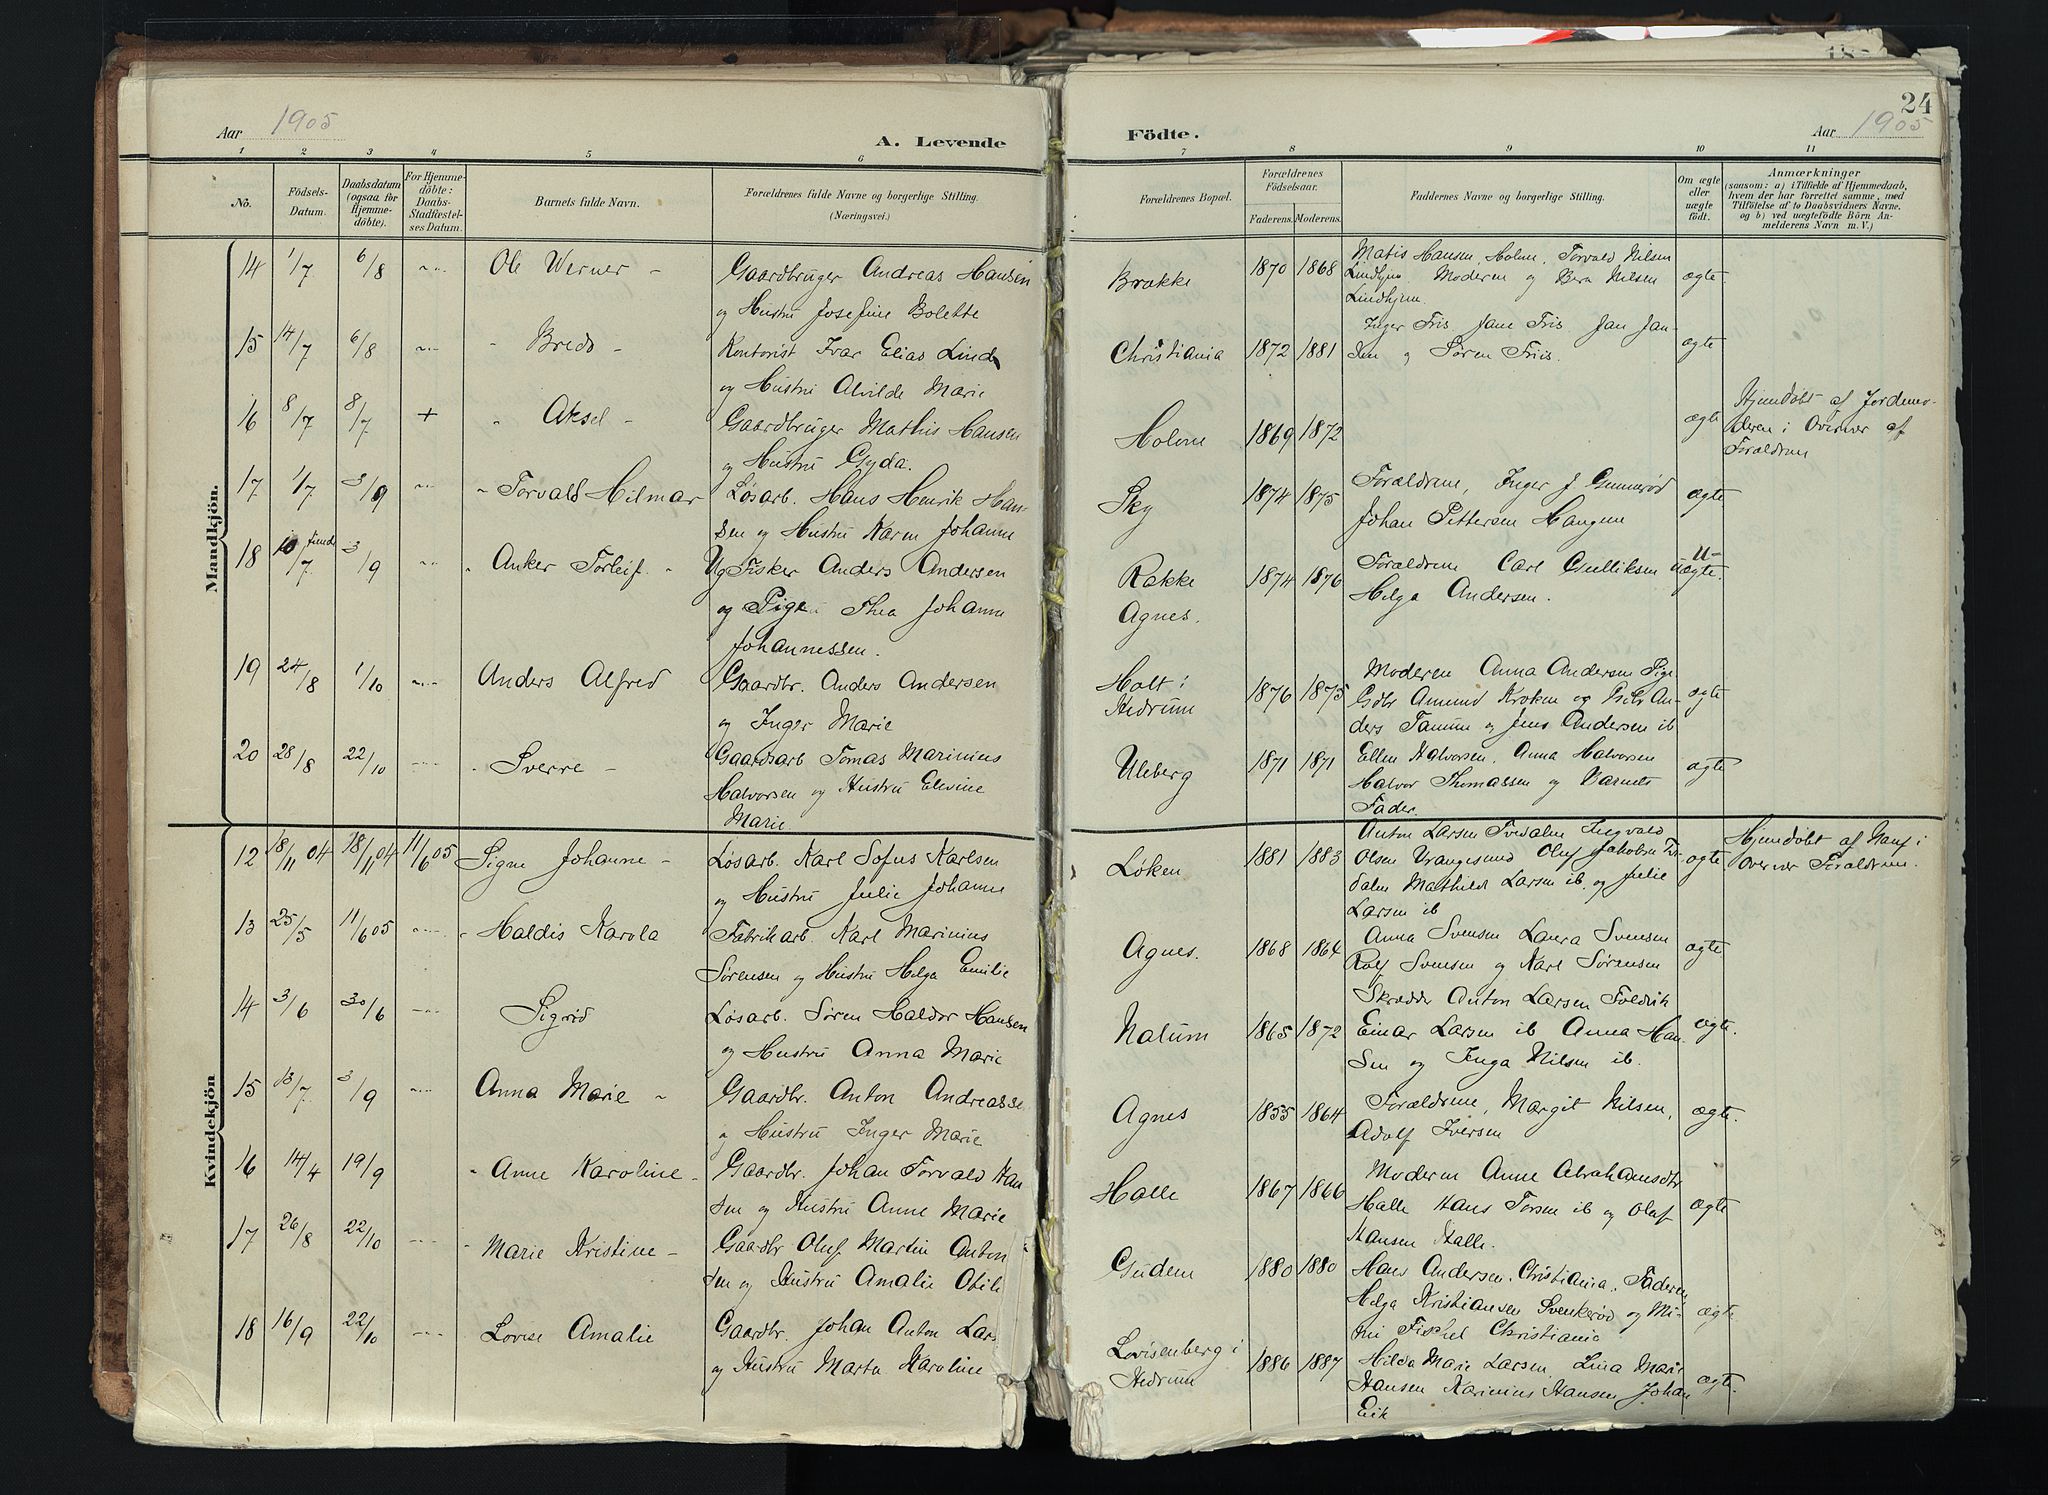 24
Aar 1905
A. Levende
Födte.
Aar 1905
1 2 3 4 5 6 7 8 9 10 11
No.
Födsels-Datum.
Daabsdatum (ogsaa for Hjemmedöbte).
For Hjemmedöbte: Daabs-Stadfæstelses Datum.
Barnets fulde Navn.
Forældrenes fulde Navne og borgerlige Stilling.
(Næringsvei.)
Forældrenes Bopæl.
Forældrenes Födselsaar.
Faderens. Moderens.
Faddernes Navne og borgerlige Stilling.
Om ægte eller uægte födt.
Anmærkninger
(saasom: a) i Tilfælde af Hjemmedaab,
hvem der har forrettet samme, med
Tilföielse af to Daabsvidners Navne.
og b) ved uægtefödte Börn Anmelderens Navn m. V.)
Mandkjön.
14 1/7 6/8 Ole Werner - Gaardbruger Andreas Hansen
og Hustru Josefine Bolette
Brække 1870 1868 Matis Hansen Holm, Torvald Nilsen
Lindhjem Moderen og Bera Nilsen
Lindhjem
ægte
15 14/7 6/8 Bredo - Kontorist Ivar Elias Lind
og Hustru Alvilde Marie
Christiania 1872 1881 Inger Fris Jane Fris Jan Jan-
sen og Søren Friis.
ægte
16 8/7 8/7 + Aksel - Gaardbruger Mathis Hansen
og Hustru Gyda.
Holm 1869 1872 ægte
Hjemdøbt af Jordemo-
deren i Overvær af
Forældrene
17 1/7 3/9 Torvald Hilmar Løsarb. Hans Henrik Han-
sen og Hustru Karen Johanne
Sky 1874 1875 Forældrene, Inger J. Gunnerød
Johan Pettersen Haugene
ægte
18 10/7 3/9 Anker Torleif. Ug Fisker Anders Andersen
og Pige Thea Johanne
Johannessen.
Rakke
Agnes.
1874 1876 Forældrene Carl Gulliksen
Helga Andersen.
U-ægte.
19 24/8 1/10 Anders Alfred Gaardbr. Anders Andersen
og Inger Marie
Holt i
Hedrum
1876 1875 Moderen Anna Andersen Pige
Gdbr Amund Kroken og An-
ders Tanum og Jens Andersen ib
ægte
20 28/8 22/10 Sverre - Gaardsarb Tomas Marinius
Halvorsen og Hustru Elvine
Marie
Uleberg 1871 1871 Ellen Halvorsen, Anna Halvorsen
Halvor Thomassen og Barnets
Fader.
ægte
Kvindekjön
12 18/11 04 18/11 04 11/6 05 Signe Johanne - Løsarb. Karl Sofus Karlsen
og Hustru Julie Johanne
Løken 1881 1883 Anton Larsen Tvedalen Ingvald
Olsen Vrangesund Oluf Jakobsen Tve-
dalen Mathilde Larsen ib. og Julie
Larsen ib
ægte
Hjemdøbt af i
Overvær Forældrene.
13 25/5 11/6 05 Haldis Karola Fabrikarb. Karl Marinius
Sørensen og Hustru Helga Emilie
Agnes. 1868 1864 Anna Svensen Laura Svensen
Rolf Svensen og Karl Sørensen
ægte
14 3/6 30/6 Sigrid Løsarb. Søren Haldor Hansen
og Hustru Anna Marie
Nalum 1865 1872 Skrædder Anton Larsen Foldvik
Einar Larsen ib Anna Han-
sen og Inga Nilsen ib.
ægte.
15 13/7 3/9 Anna Marie - Gaardbr. Anton Andreasse
og Hustru Inger Marie
Agnes 1855 1864 Forældrene, Margit Nilsen,
Adolf Iversen
ægte.
16 14/4 19/9 Anne Karoline - Gaardbr. Johan Torvald Han
sen og Hustru Anne Marie
Halle 1867 1866 Moderen Anne Abrahamsdtr
Halle Hans Torsen ib og Oluf
Hansen Halle.
ægte
17 26/8 22/10 Marie Kristine - Gaardbr Oluf Martin Anton
sen og Hustru Amalie Otili
Gudem 1880 1880 Hans Andersen, Christiania, Faderen,
Helga Kristiansen Svenkerød og Mi-
ni Fischel Christiania
ægte.
18 16/9 22/10 Lovise Amalie Gaardbr. Johan Anton Lars
og Hustru Marta Karoline
Lovisenberg i
Hedrum
1886 1887 Hilda Marie Larsen, Lina Marie
Hansen Karinius Hansen Johan
Eik
ægte.